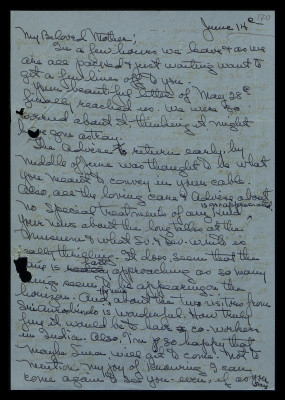 June 14th
170
My Beloved Mother;
In a few hours we leave & as we
are all packed & just waiting want to
get a few lines off to you.
Your beautiful letter of May 28th
finally reached us. We were so
worried about it - thinking it might
have gone astray.
The Advise to return early, by
middle of June was thought to be what
you meant to convey in your cable.
Also, all the loving care & Advise about
no special treatments of any kind is so appreciated.
Your news about the long talks at the
& what
really thrilling. It does, seem that the
time is fast approaching as so many
things seem to be appearing on the
horizon. And, about the two visitors from
Sri Aurobindo is wonderful. How truly
fine it would be to have co-workers
in India. Also, I'm so happy that
maybe will get to come. Not to
mention my joy of knowing I can
come again & see you even, if as you
say